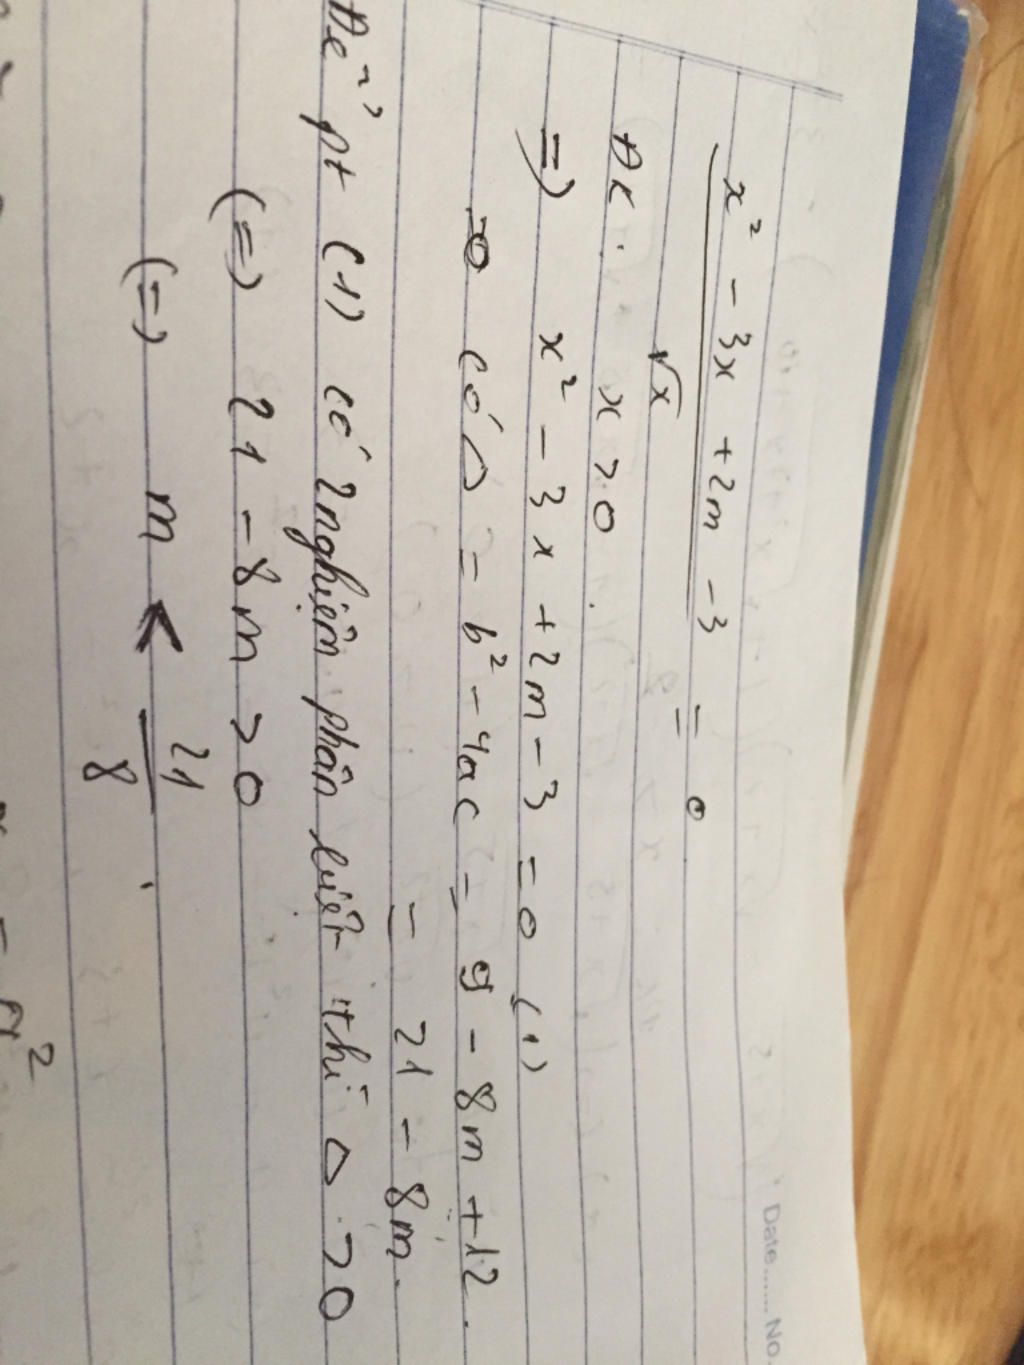 Date...... No.
x² - 3x + 2m - 3 = 0
√x
ĐK: x > 0.
=) x² - 3x + 2m - 3 = 0 (1)
có Δ = b² - 4ac = 9 - 8m + 12.
= 21 - 8m.
Để pt (1) có 2 nghiệm phân biệt thì Δ > 0
(=) 21 - 8m > 0
(=) m < 21/8.